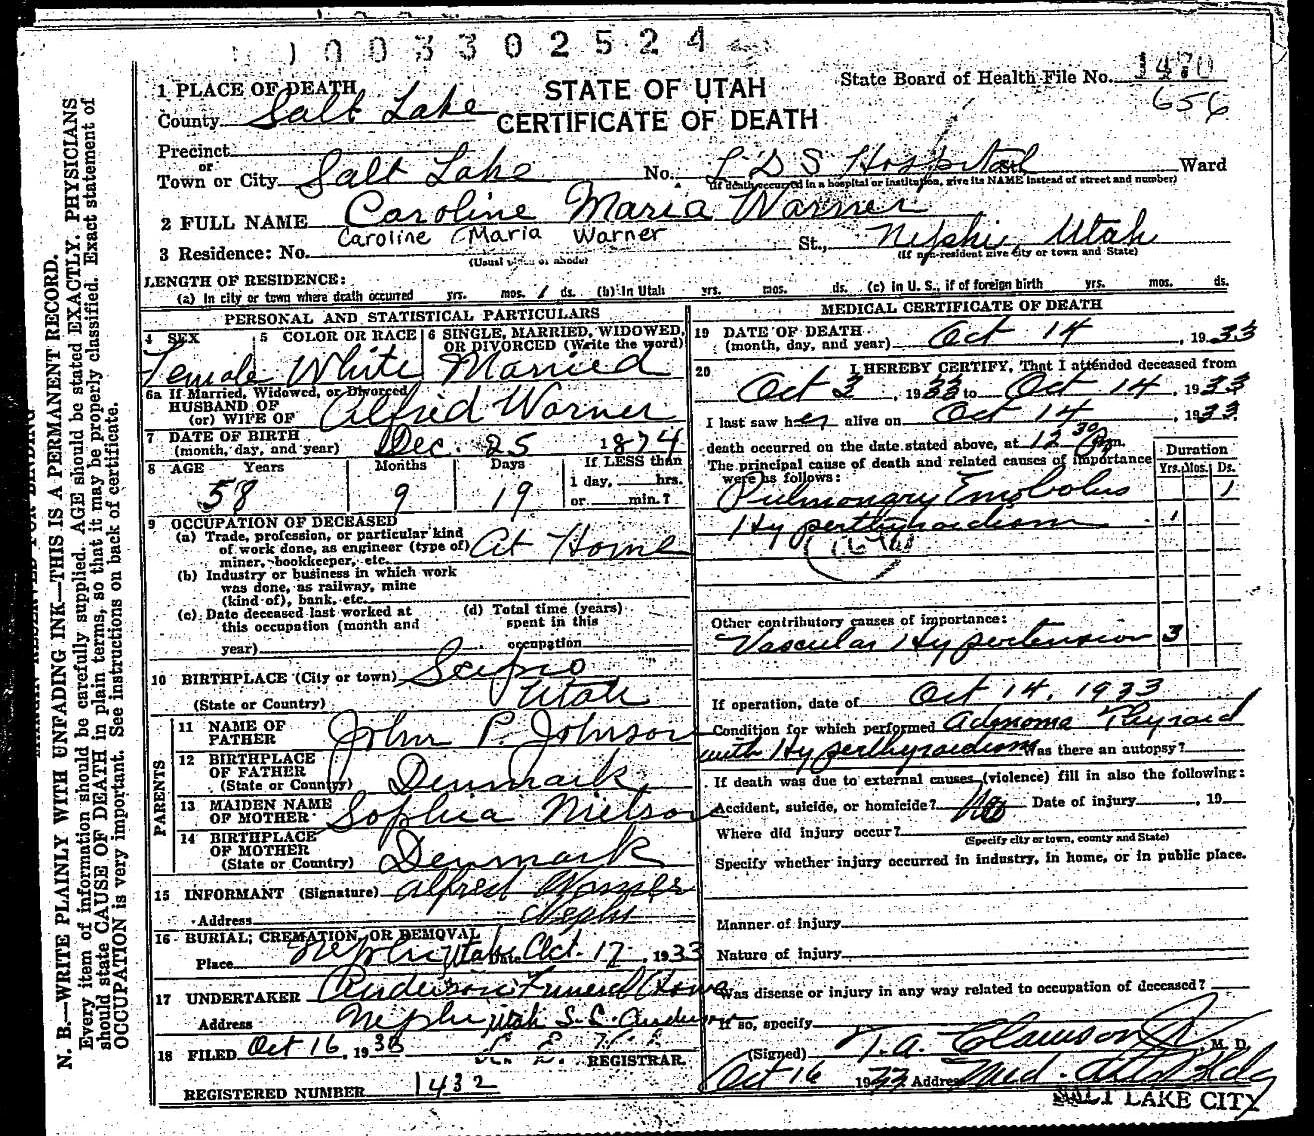 1003302524
STATE OF UTAH
CERTIFICATE OF DEATH
State Board of Health File No. 1470
656
1 PLACE OF DEATH
County Salt Lake
Precinct
or
Town or City Salt Lake No. L D S Hospital St. Ward
(If death occurred in a hospital or institution, give its NAME instead of street and number)
2 FULL NAME Caroline Maria Warner
Caroline Maria Warner
3 Residence: No. St., Nephi, Utah
(Usual place of abode) (If non-resident give city or town and State)
LENGTH OF RESIDENCE:
(a) In city or town where death occurred yrs. mos. 1 ds. (b) In Utah yrs. mos. ds. (c) in U. S., if of foreign birth yrs. mos. ds.
PERSONAL AND STATISTICAL PARTICULARS
4 SEX 5 COLOR OR RACE 6 SINGLE, MARRIED, WIDOWED, OR DIVORCED (Write the word)
Female White Married
6a If Married, Widowed, or Divorced
HUSBAND OF
(or) WIFE OF Alfred Warner
7 DATE OF BIRTH
(month, day, and year) Dec. 25 1874
8 AGE Years Months Days If LESS than
1 day, hrs.
58 9 19 or min.?
9 OCCUPATION OF DECEASED
(a) Trade, profession, or particular kind
of work done, as engineer (type of) At Home
miner, bookkeeper, etc.
(b) Industry or business in which work
was done, as railway, mine
(kind of), bank, etc.
(c) Date deceased last worked at (d) Total time (years)
this occupation (month and spent in this
year) occupation
10 BIRTHPLACE (City or town) Scipio
(State or Country) Utah
PARENTS
11 NAME OF
FATHER John P. Johnson
12 BIRTHPLACE
OF FATHER
(State or Country) Denmark
13 MAIDEN NAME
OF MOTHER Sophia Nielson
14 BIRTHPLACE
OF MOTHER
(State or Country) Denmark
15 INFORMANT (Signature) Alfred Warner
Address Nephi
16 BURIAL, CREMATION, OR REMOVAL
Place Nephi Utah Date Oct. 17, 1933
17 UNDERTAKER Anderson Funeral Home
Address Nephi Utah S. C. Anderson
18 FILED Oct 16, 1933
REGISTRAR.
REGISTERED NUMBER 1432
MEDICAL CERTIFICATE OF DEATH
19 DATE OF DEATH
(month, day, and year) Oct 14, 1933
20 I HEREBY CERTIFY, That I attended deceased from
Oct 3, 1933 to Oct 14, 1933
I last saw her alive on Oct 14, 1933
death occurred on the date stated above, at 12 30 Pm.
The principal cause of death and related causes of importance
were as follows:
Duration
Yrs. Mos. Ds.
Pulmonary Embolus 1
Hyperthyroidism 1
Other contributory causes of importance:
Vascular Hypertension 3
If operation, date of Oct 14, 1933
Condition for which performed Adenoma Thyroid
with Hyperthyroidism Was there an autopsy?
If death was due to external causes (violence) fill in also the following:
Accident, suicide, or homicide? No Date of injury , 19
Where did injury occur?
(Specify city or town, county and State)
Specify whether injury occurred in industry, in home, or in public place.
Manner of injury
Nature of injury
Was disease or injury in any way related to occupation of deceased?
If so, specify
(Signed) T. A. Clawson Jr, M. D.
Oct 16 1933 Address Med. Arts Bldg
SALT LAKE CITY
N. B.—WRITE PLAINLY WITH UNFADING INK—THIS IS A PERMANENT RECORD.
Every item of information should be carefully supplied. AGE should be stated EXACTLY. PHYSICIANS
should state CAUSE OF DEATH in plain terms, so that it may be properly classified. Exact statement of
OCCUPATION is very important. See instructions on back of certificate.